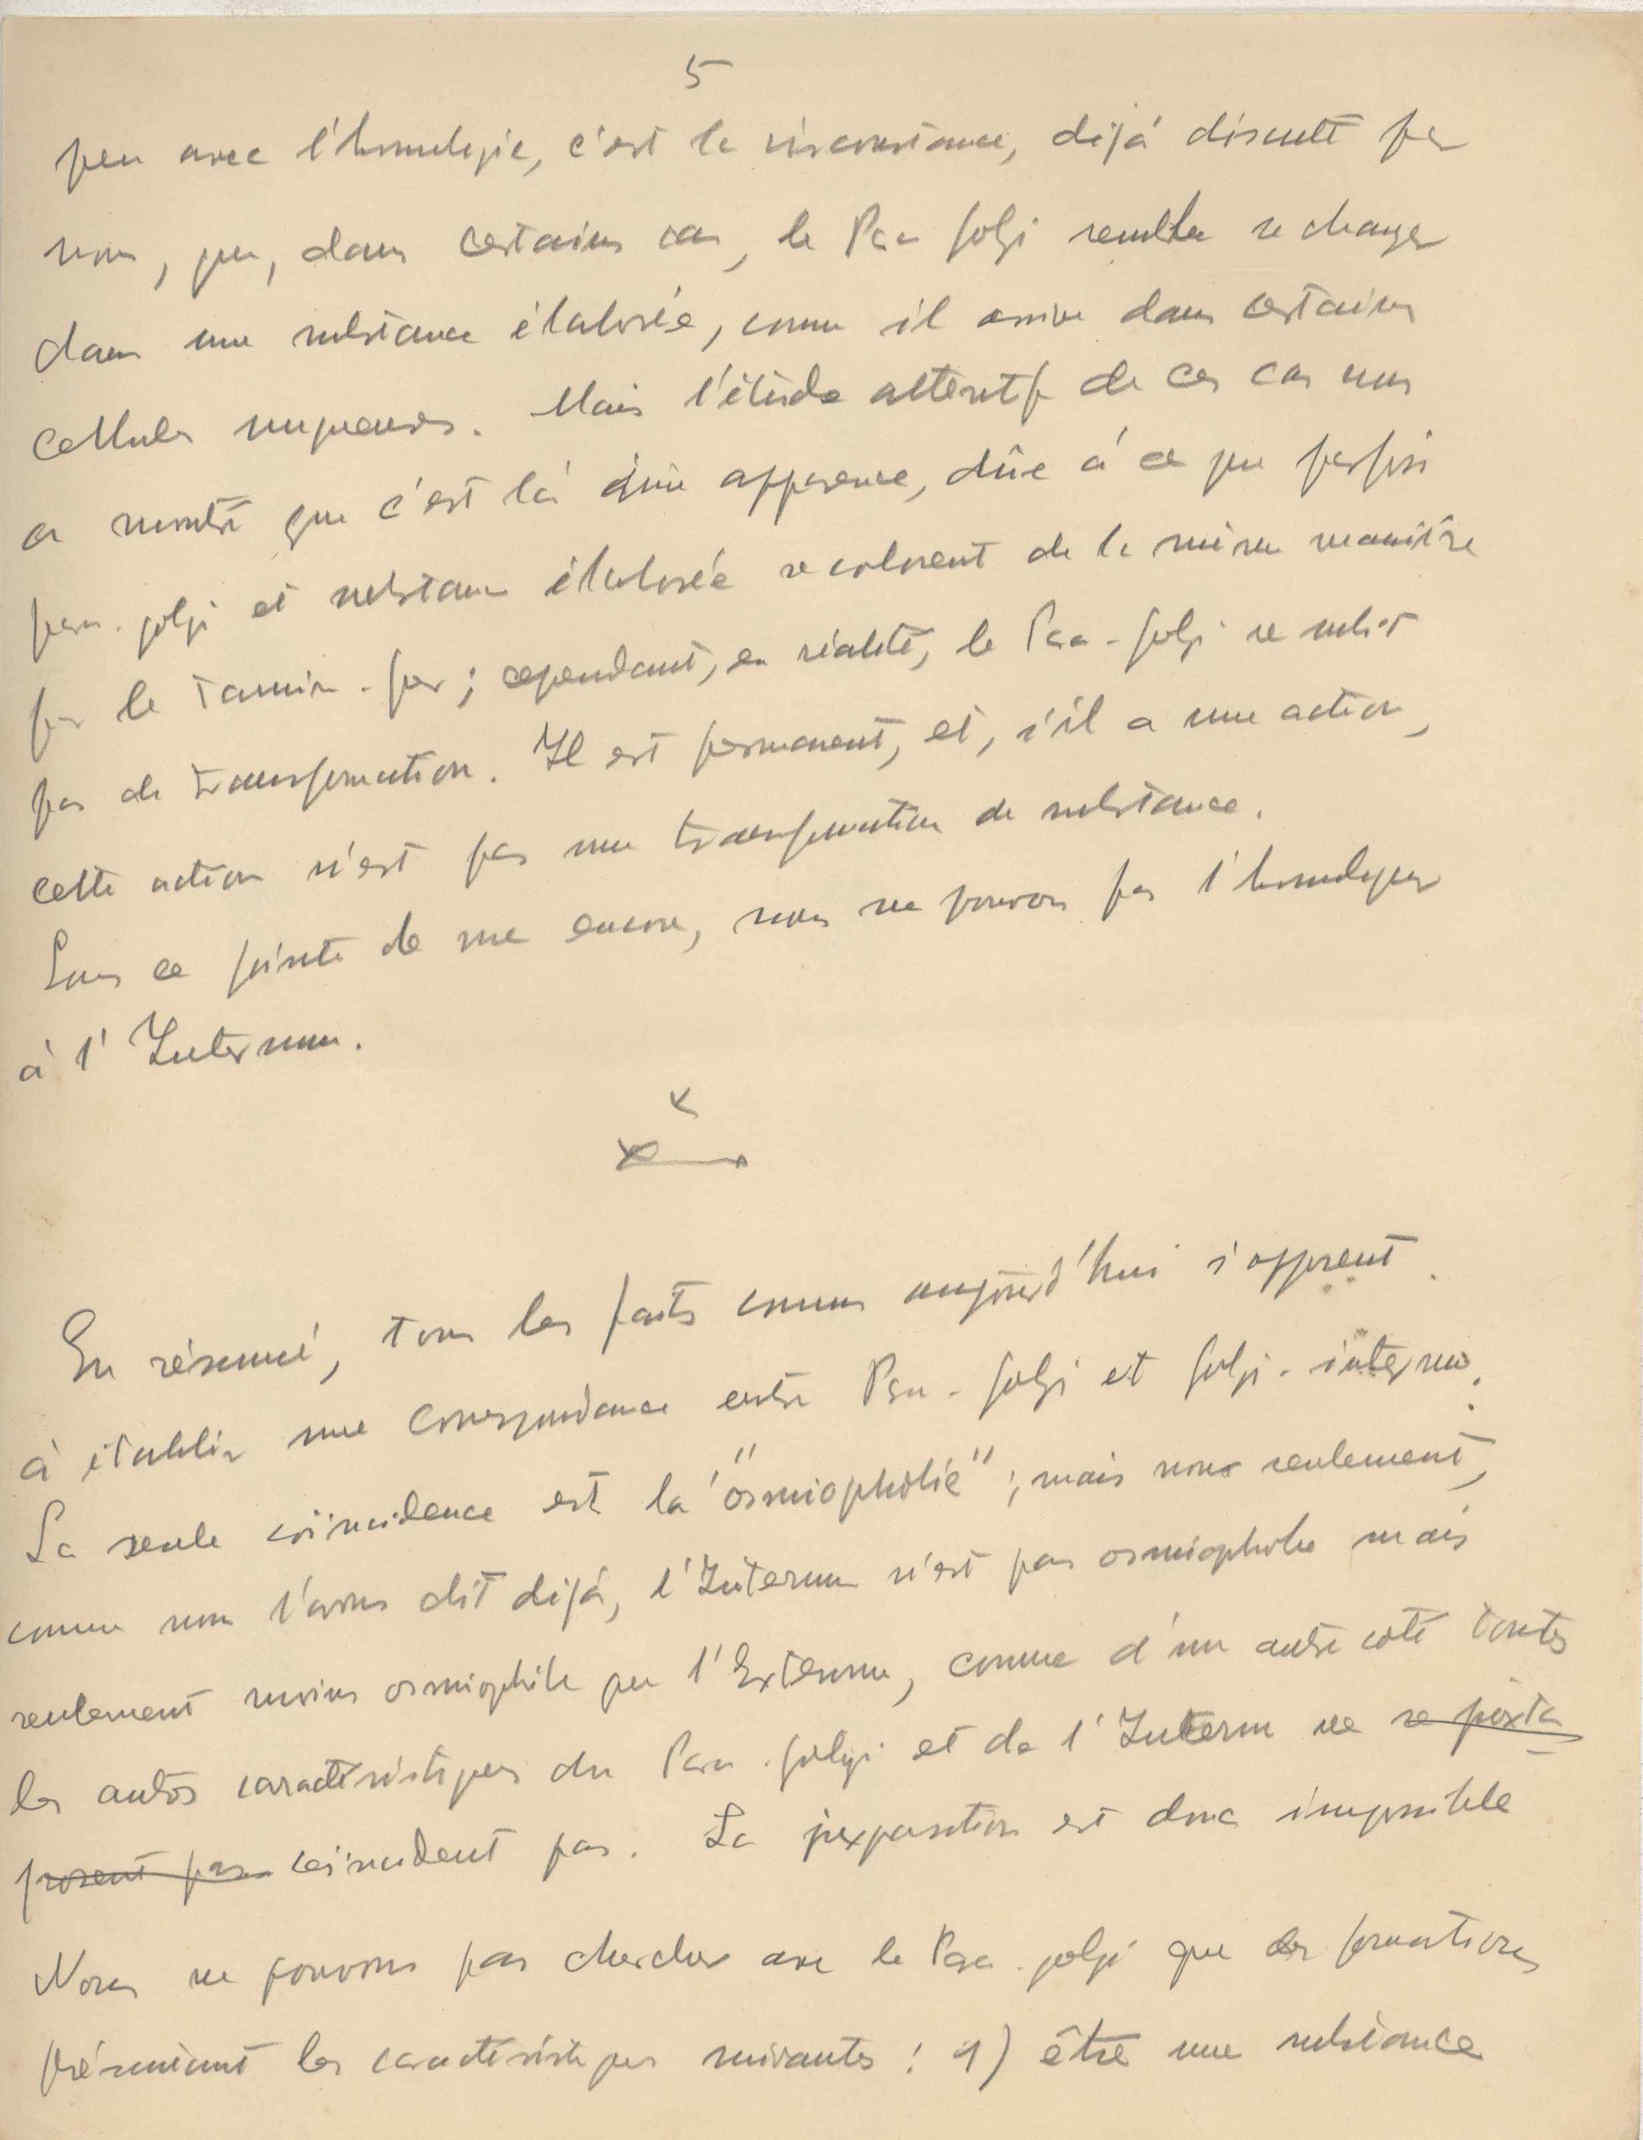 5
peu avec l'homologie, c'est la circonstance, déjà discuté par
nous, que, dans certains cas, le Para Golgi semble se changer
dans une substance élaborée, comme il arrive dans certaines
cellules muqueuses. Mais l'étude attentif de ces cas nous
a montré que c'est là une apparence, dûe à ce que
para-golgi et substance élaborée se colorent de la même manière
par le tannin-fer; cependant, en réalité, le Para-Golgi ne subit
pas de transformation. Il est permanent, et, s'il a une action,
cette action n'est pas une transformation de substance.
Sous ce point de vue encore, nous ne pouvons pas l'homologuer
à l'Internum.
En résumé, tous les faits connus aujourd'hui s'opposent
à établir une correspondance entre Para-Golgi et Golgi-internum.
La seule coïncidence est la "osmiophilie"; mais non seulement,
comme nous l'avons dit déjà, l'Internum n'est pas osmiophile mais
seulement moins osmiophile que l'Externum, comme d'un autre coté toutes
les autres caractéristiques du Para-golgi et de l'Internum ne se juxta
posent pas coïncident pas. La juxposition est donc impossible
Nous ne pouvons pas chercher avec le Para-golgi que des formations
présentant les caractéristiques suivantes: 1) être une substance